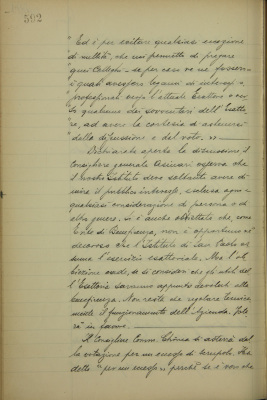 592
"Ed è per evitare qualsiasi eccezione
"di nullità, che mi permetto di pregare
"quei Colleghi - se per caso ve ne fossero -
"i quali avessero legami di interessi o
"professionali con l'attuale Esattore o
"re, ad avere la cortesia di astenersi
"dalla discussione e dal voto. "
Dichiarata aperta la discussione il
Consigliere generale Asinari osserva che
il nostro Istituto deve soltanto avere di
mira il pubblico interesse, esclusa ogni e
qualsiasi considerazione di persona o di
altro genere. Si è anche obiettato che, come
Ente di Beneficenza, non è opportuno nè
decoroso che l'Istituto di San Paolo as-
suma l'esercizio esattoriale. Ma l'ob-
biezione cade, se si consideri che gli utili del-
l'Esattoria saranno appunto devoluti alla
beneficenza. Non resta che regolare tecnica-
mente il funzionamento dell'Azienda. Vote-
rà in favore.
Il Consigliere Comm. si asterrà dal-
la votazione per un scrupolo. Ha
detto "per un " perchè se è vero che